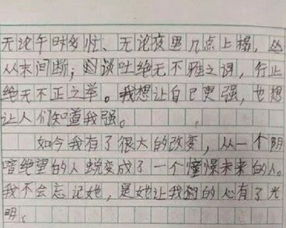 无论午时多忙、无论夜里几点上榻，
从未间断；谈吐绝无不雅之词，行止
绝无不正之举。我想让自己更强，也想
让人们知道我强。
如今我有了很大的改变，从一个阴
暗绝望的人蜕变成了一个憧憬未来的人。
我不会忘记她，是她让我的心有了光
明。